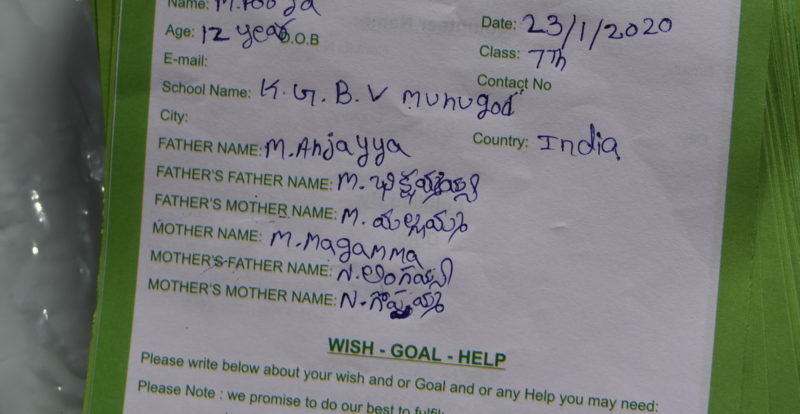 Name: M. Pooja
Date: 23/1/2020
Age: 12 year D.O.B
Class: 7th
E-mail:
Contact No
School Name: K. G. B. V munugod
City:
Country: India
FATHER NAME: M. Anjayya
FATHER'S FATHER NAME: M.
FATHER'S MOTHER NAME: M.
MOTHER NAME: M. magamma
MOTHER'S-FATHER NAME: N.
MOTHER'S MOTHER NAME: N.
WISH - GOAL - HELP
Please write below about your wish and or Goal and or any Help you may need:
Please Note : we promise to do our best to fulfil